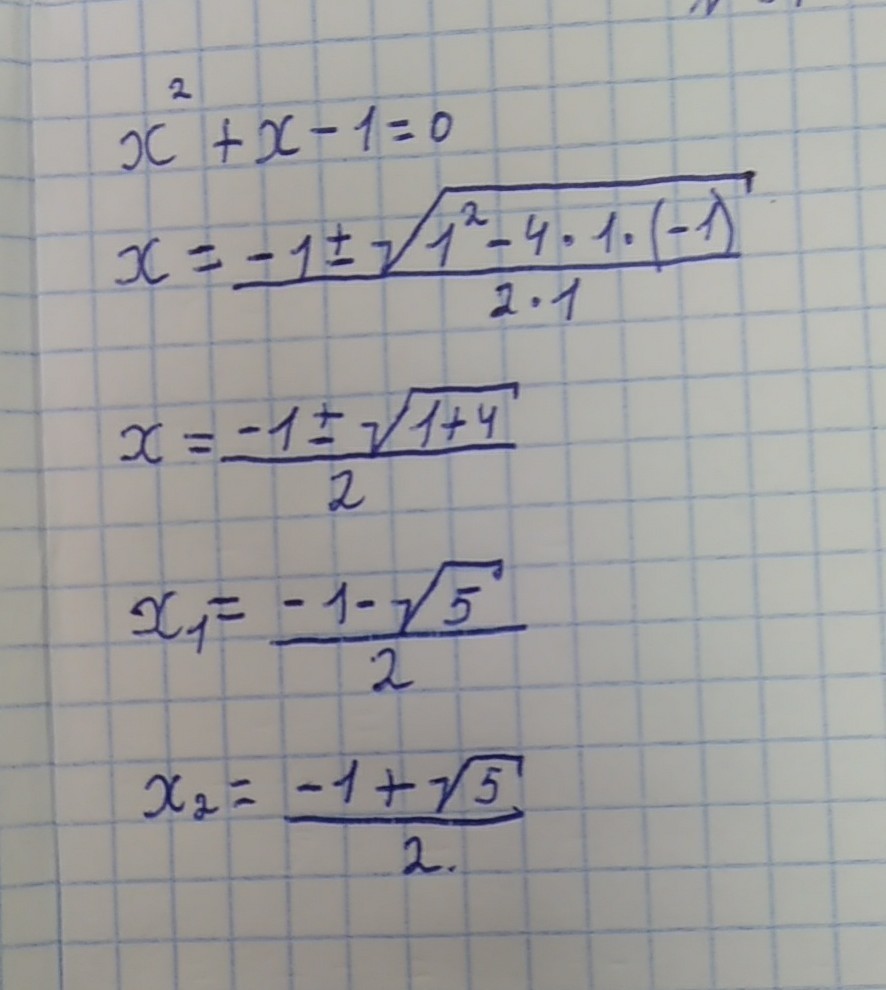 x² + x - 1 = 0
x = (-1 ± √(1² - 4 · 1 · (-1))) / (2 · 1)
x = (-1 ± √(1+4)) / 2
x₁ = (-1 - √5) / 2
x₂ = (-1 + √5) / 2.